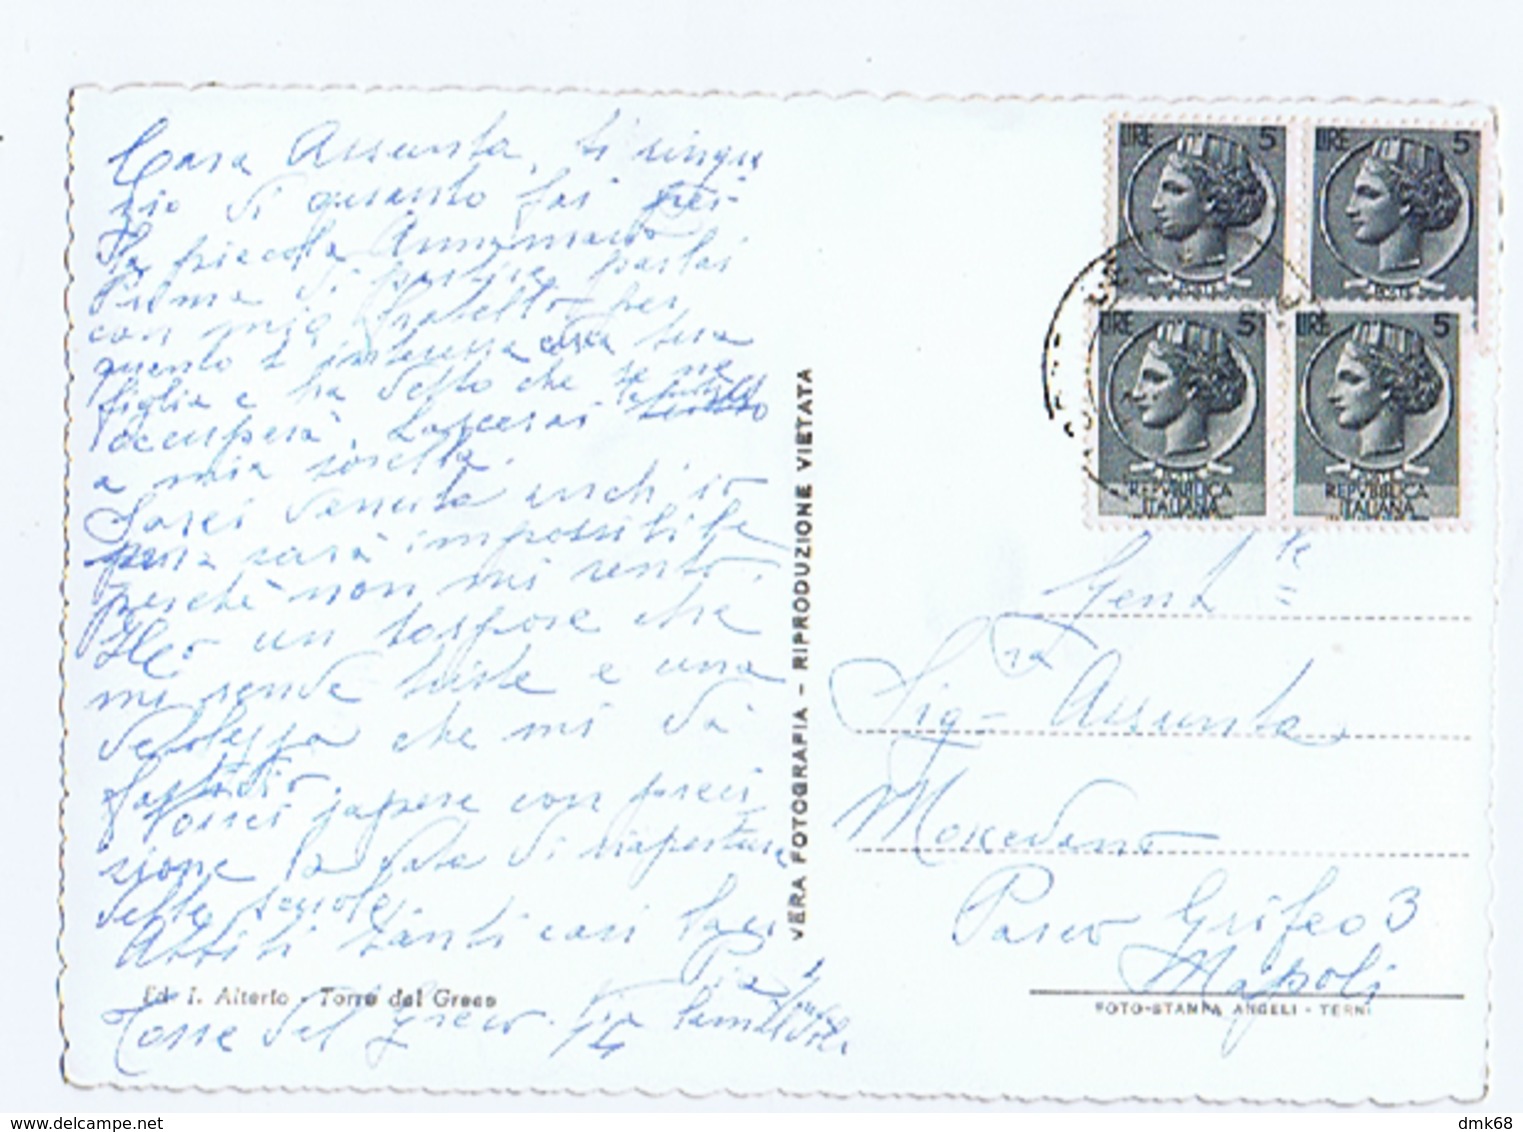 Cara Assunta, ti ringra
zio di quanto fai per
la piccola Annamaria
Prima di partire parlai
con mio fratello per
quanto t interessa circa tua
figlia e ha detto che se ne
occuperà. Lascerai
a mia sorella.
Sarei venuta anch io
sarà impossibile
perchè non mi sento.
Ho un torpore che
mi rende triste e una
debolezza che mi dà
fastidio.
Vorrei sapere con preci
sione la data di riapertura
delle scuole.
Abbiti tanti cari baci
Pia
Torre del Greco. Via
Ed. I. Alterio - Torre del Greco
VERA FOTOGRAFIA - RIPRODUZIONE VIETATA
LIRE 5
LIRE 5
POSTE
POSTE
LIRE 5
LIRE 5
REPVBBLICA
ITALIANA
REPVBBLICA
ITALIANA
Gent le
Sig ra Assunta
Morcedano
Parco Grifeo 3
Napoli
FOTO-STAMPA ANGELI - TERNI
delcampe.net
dmk68